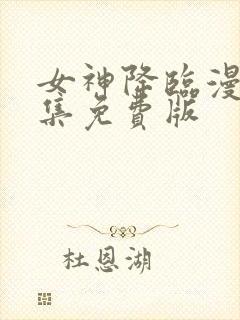 女神降臨漫
集免費版
杜恩湖